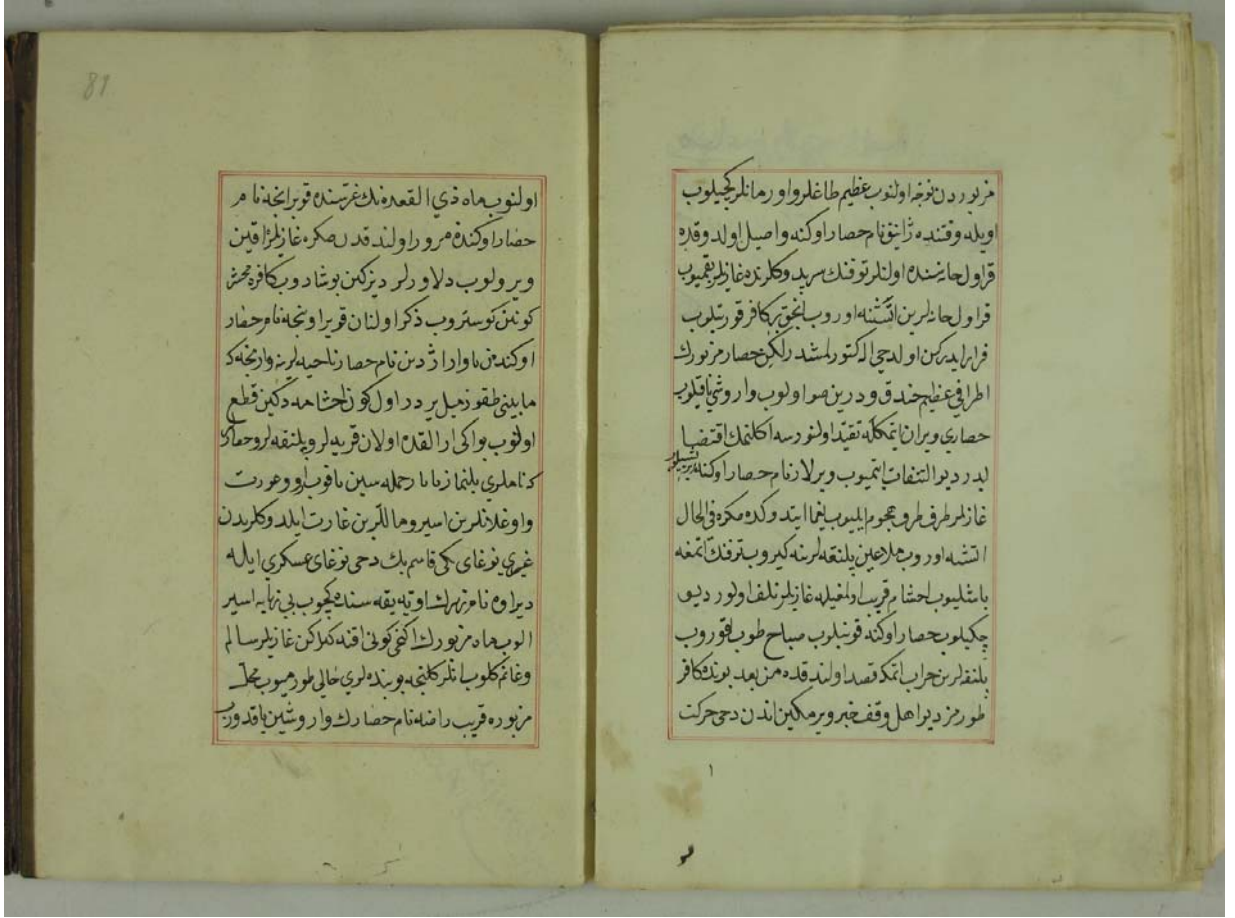 مزبوردن توجه اولنوب عظیم طاغلر و اورمانلر کچیلوب
اویله وقتنده ژانیق نام حصار اوکنه واصیل اولدوقده
قراول خانه‌سنده اولنلر توفنك سرپدوکلرنده غازیلر بقمیوب
قراول خانه‌لرین اتشنه اوروب انجق بر کافر قورتیلوب
فرار ایدرکن اولدخی اله کتورلمشدر لکن حصار مزبورك
اطرافی عظیم خندق و درین صو اولوب واروشی یاقیلوب
حصاری ویران ایتمکله تقیّد اولنورسه اکلنمك اقتضا
ایدر دیو التفات ایتمیوب ویرلار نام حصار اوکنه
غازیلر طرف طرف هجوم ایلیوب یغما ایتدوکده مکره فی الحال
اتشه اوروب ملاعین پلنقه‌لرینه کیروب ترفنك اتمغه
باشلیوب احشام قریب اولمغیله غازیلر تلف اولور دیو
چکیلوب حصار اوکنه قونیلوب صباح طوب قوروب
پلنقه‌لرین خراب اتمکه قصد اولندقده من بعد بونده کافر
طورمز دیو اهل وقف خبر ویرمکین اندن دخی حرکت
۱
81
اولنوب ماه ذي القعده‌نك غرّسنده قویرانجه نام
حصار اوکنده مرور اولندقدن صکره غازیلره اقین
ویرولوب دلاورلر دیزکین بوشادوب کافره محشر
کونن کوستروب ذکر اولنان قویراونجه نام حصار
اوکندن تا واراژدین نام حصار ناحیه‌لرینه وارنجه که
مابینی طقوز میل یردر اول کون احشامه دکین قطع
اولنوب بو ایکی ارالقده اولان قریه‌لر و پلنقه‌لر و حصار
که ناملری بلنماز یانار جمله‌سین یاقوب و عورت
و اوغلانلرین اسیر و ماللرین غارت ایلدوکلریدن
غیری نوغای بکی قاسم بك دخی نوغای عسکری ایله
دیراوه نام نهرك اوته یقه‌سنده کچوب بی نهایه اسیر
الوب ماه مزبورك اکنجی کونی اقنده کلن غازیلر سالم
و غانم کلوب انلر کلنجه بونده‌لری خالی طورمیوب محلّ
مزبوره قریب راضنه نام حصارك واروشین یاقدوروب